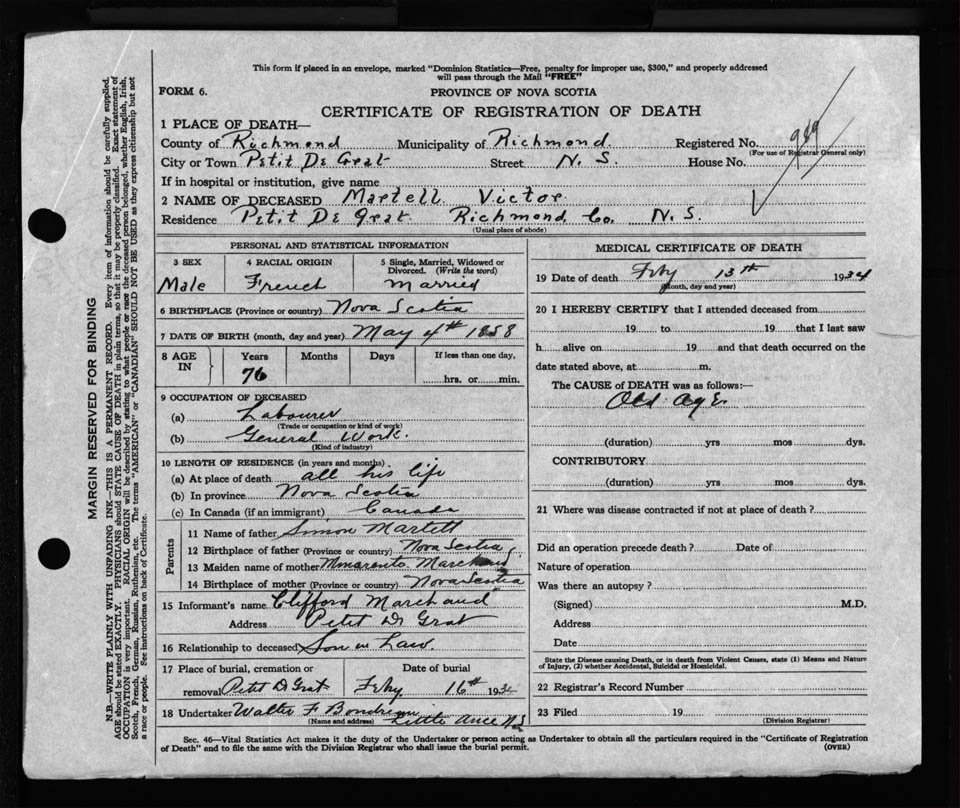 This form if placed in an envelope, marked "Dominion Statistics—Free, penalty for improper use, $300," and properly addressed
will pass through the Mail "FREE"
FORM 6.
PROVINCE OF NOVA SCOTIA
CERTIFICATE OF REGISTRATION OF DEATH
1 PLACE OF DEATH—
County of Richmond Municipality of Richmond Registered No. 949
(For use of Registrar General only)
City or Town Petit De Grat Street N. S. House No.
If in hospital or institution, give name
2 NAME OF DECEASED Martell Victor
Residence Petit De Grat Richmond Co. N. S.
(Usual place of abode)
PERSONAL AND STATISTICAL INFORMATION
3 SEX 4 RACIAL ORIGIN 5 Single, Married, Widowed or
Divorced. (Write the word)
Male French Married
6 BIRTHPLACE (Province or country) Nova Scotia
7 DATE OF BIRTH (month, day and year) May 4th 1858
8 AGE IN Years Months Days If less than one day,
76 hrs. or min.
9 OCCUPATION OF DECEASED
(a) Labourer
(Trade or occupation or kind of work)
(b) General Work.
(Kind of industry)
10 LENGTH OF RESIDENCE (in years and months)
(a) At place of death all his life
(b) In province Nova Scotia
(c) In Canada (if an immigrant) Canada
Parents
11 Name of father Simon Martell
12 Birthplace of father (Province or country) Nova Scotia
13 Maiden name of mother Marchand
14 Birthplace of mother (Province or country) Nova Scotia
15 Informant's name Clifford Marchand
Address Petit De Grat
16 Relationship to deceased Son in Law.
17 Place of burial, cremation or Date of burial
removal Petit D Grat Feby 16th 1934
18 Undertaker Walter F Boudreau
(Name and address) Little Ance N.S
MEDICAL CERTIFICATE OF DEATH
19 Date of death Feby 13th 1934
(Month, day and year)
20 I HEREBY CERTIFY that I attended deceased from
19 to 19 that I last saw
h alive on 19 and that death occurred on the
date stated above, at m.
The CAUSE of DEATH was as follows:—
Old Age.
(duration) yrs mos dys.
CONTRIBUTORY
(duration) yrs. mos dys.
21 Where was disease contracted if not at place of death?
Did an operation precede death? Date of
Nature of operation
Was there an autopsy?
(Signed) M.D.
Address
Date
State the Disease causing Death, or in death from Violent Causes, state (1) Means and Nature
of Injury, (2) whether Accidental, Suicidal or Homicidal.
22 Registrar's Record Number
23 Filed 19
(Division Registrar)
Sec. 46—Vital Statistics Act makes it the duty of the Undertaker or person acting as Undertaker to obtain all the particulars required in the "Certificate of Registration
of Death" and to file the same with the Division Registrar who shall issue the burial permit. (OVER)
MARGIN RESERVED FOR BINDING
N.B.—WRITE PLAINLY WITH UNFADING INK—THIS IS A PERMANENT RECORD. Every item of information should be carefully supplied.
AGE should be stated EXACTLY. PHYSICIANS should STATE CAUSE OF DEATH in plain terms, so that it may be properly classified. Exact statement of
OCCUPATION is very important. RACIAL ORIGIN will be described by stating to what people or race the deceased person belonged, whether English, Irish,
Scotch, French, German, Russian, Ruthenian, etc. The terms "AMERICAN" or "CANADIAN" SHOULD NOT BE USED as they express citizenship but not
a race or people. See instructions on back of Certificate.